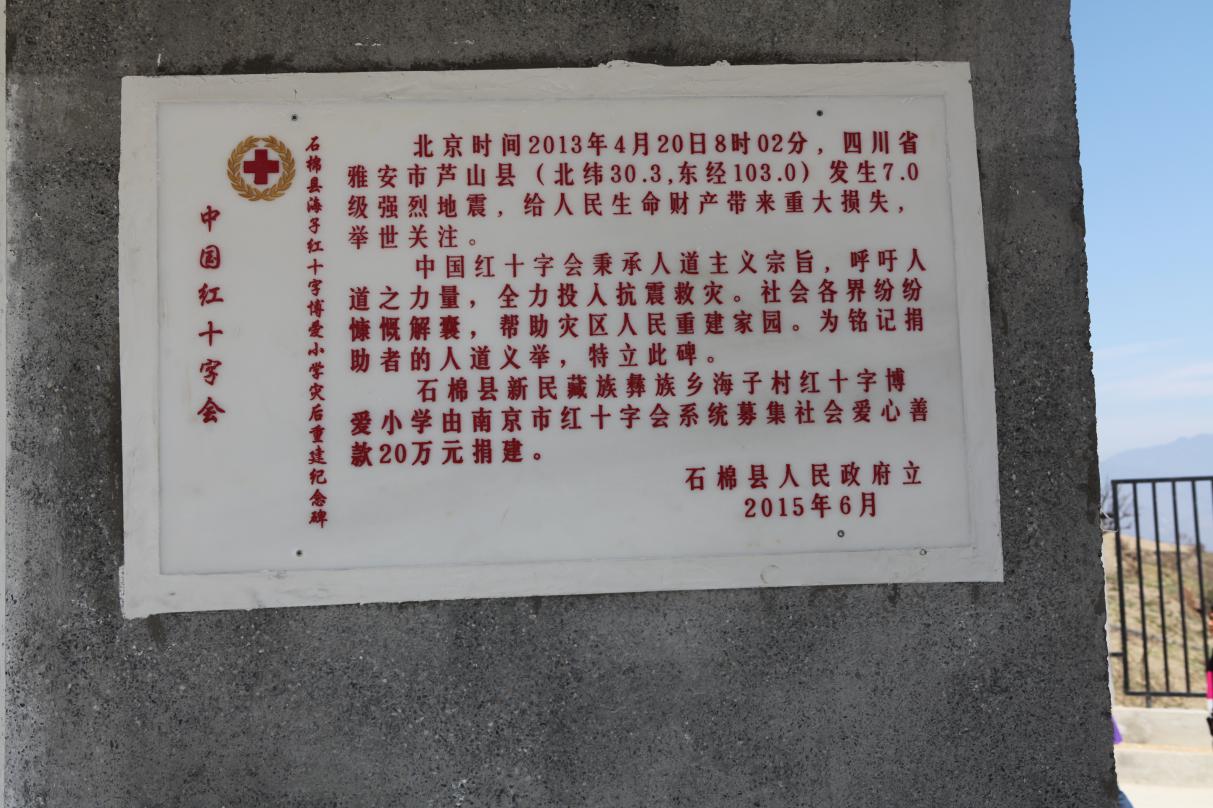 中国红十字会
石棉县海子红十字博爱小学灾后重建纪念碑
北京时间2013年4月20日8时02分，四川省
雅安市芦山县（北纬30.3,东经103.0）发生7.0
级强烈地震，给人民生命财产带来重大损失，
举世关注。
中国红十字会秉承人道主义宗旨，呼吁人
道之力量，全力投入抗震救灾。社会各界纷纷
慷慨解囊，帮助灾区人民重建家园。为铭记捐
助者的人道义举，特立此碑。
石棉县新民藏族彝族乡海子村红十字博
爱小学由南京市红十字会系统募集社会爱心善
款20万元捐建。
石棉县人民政府立
2015年6月